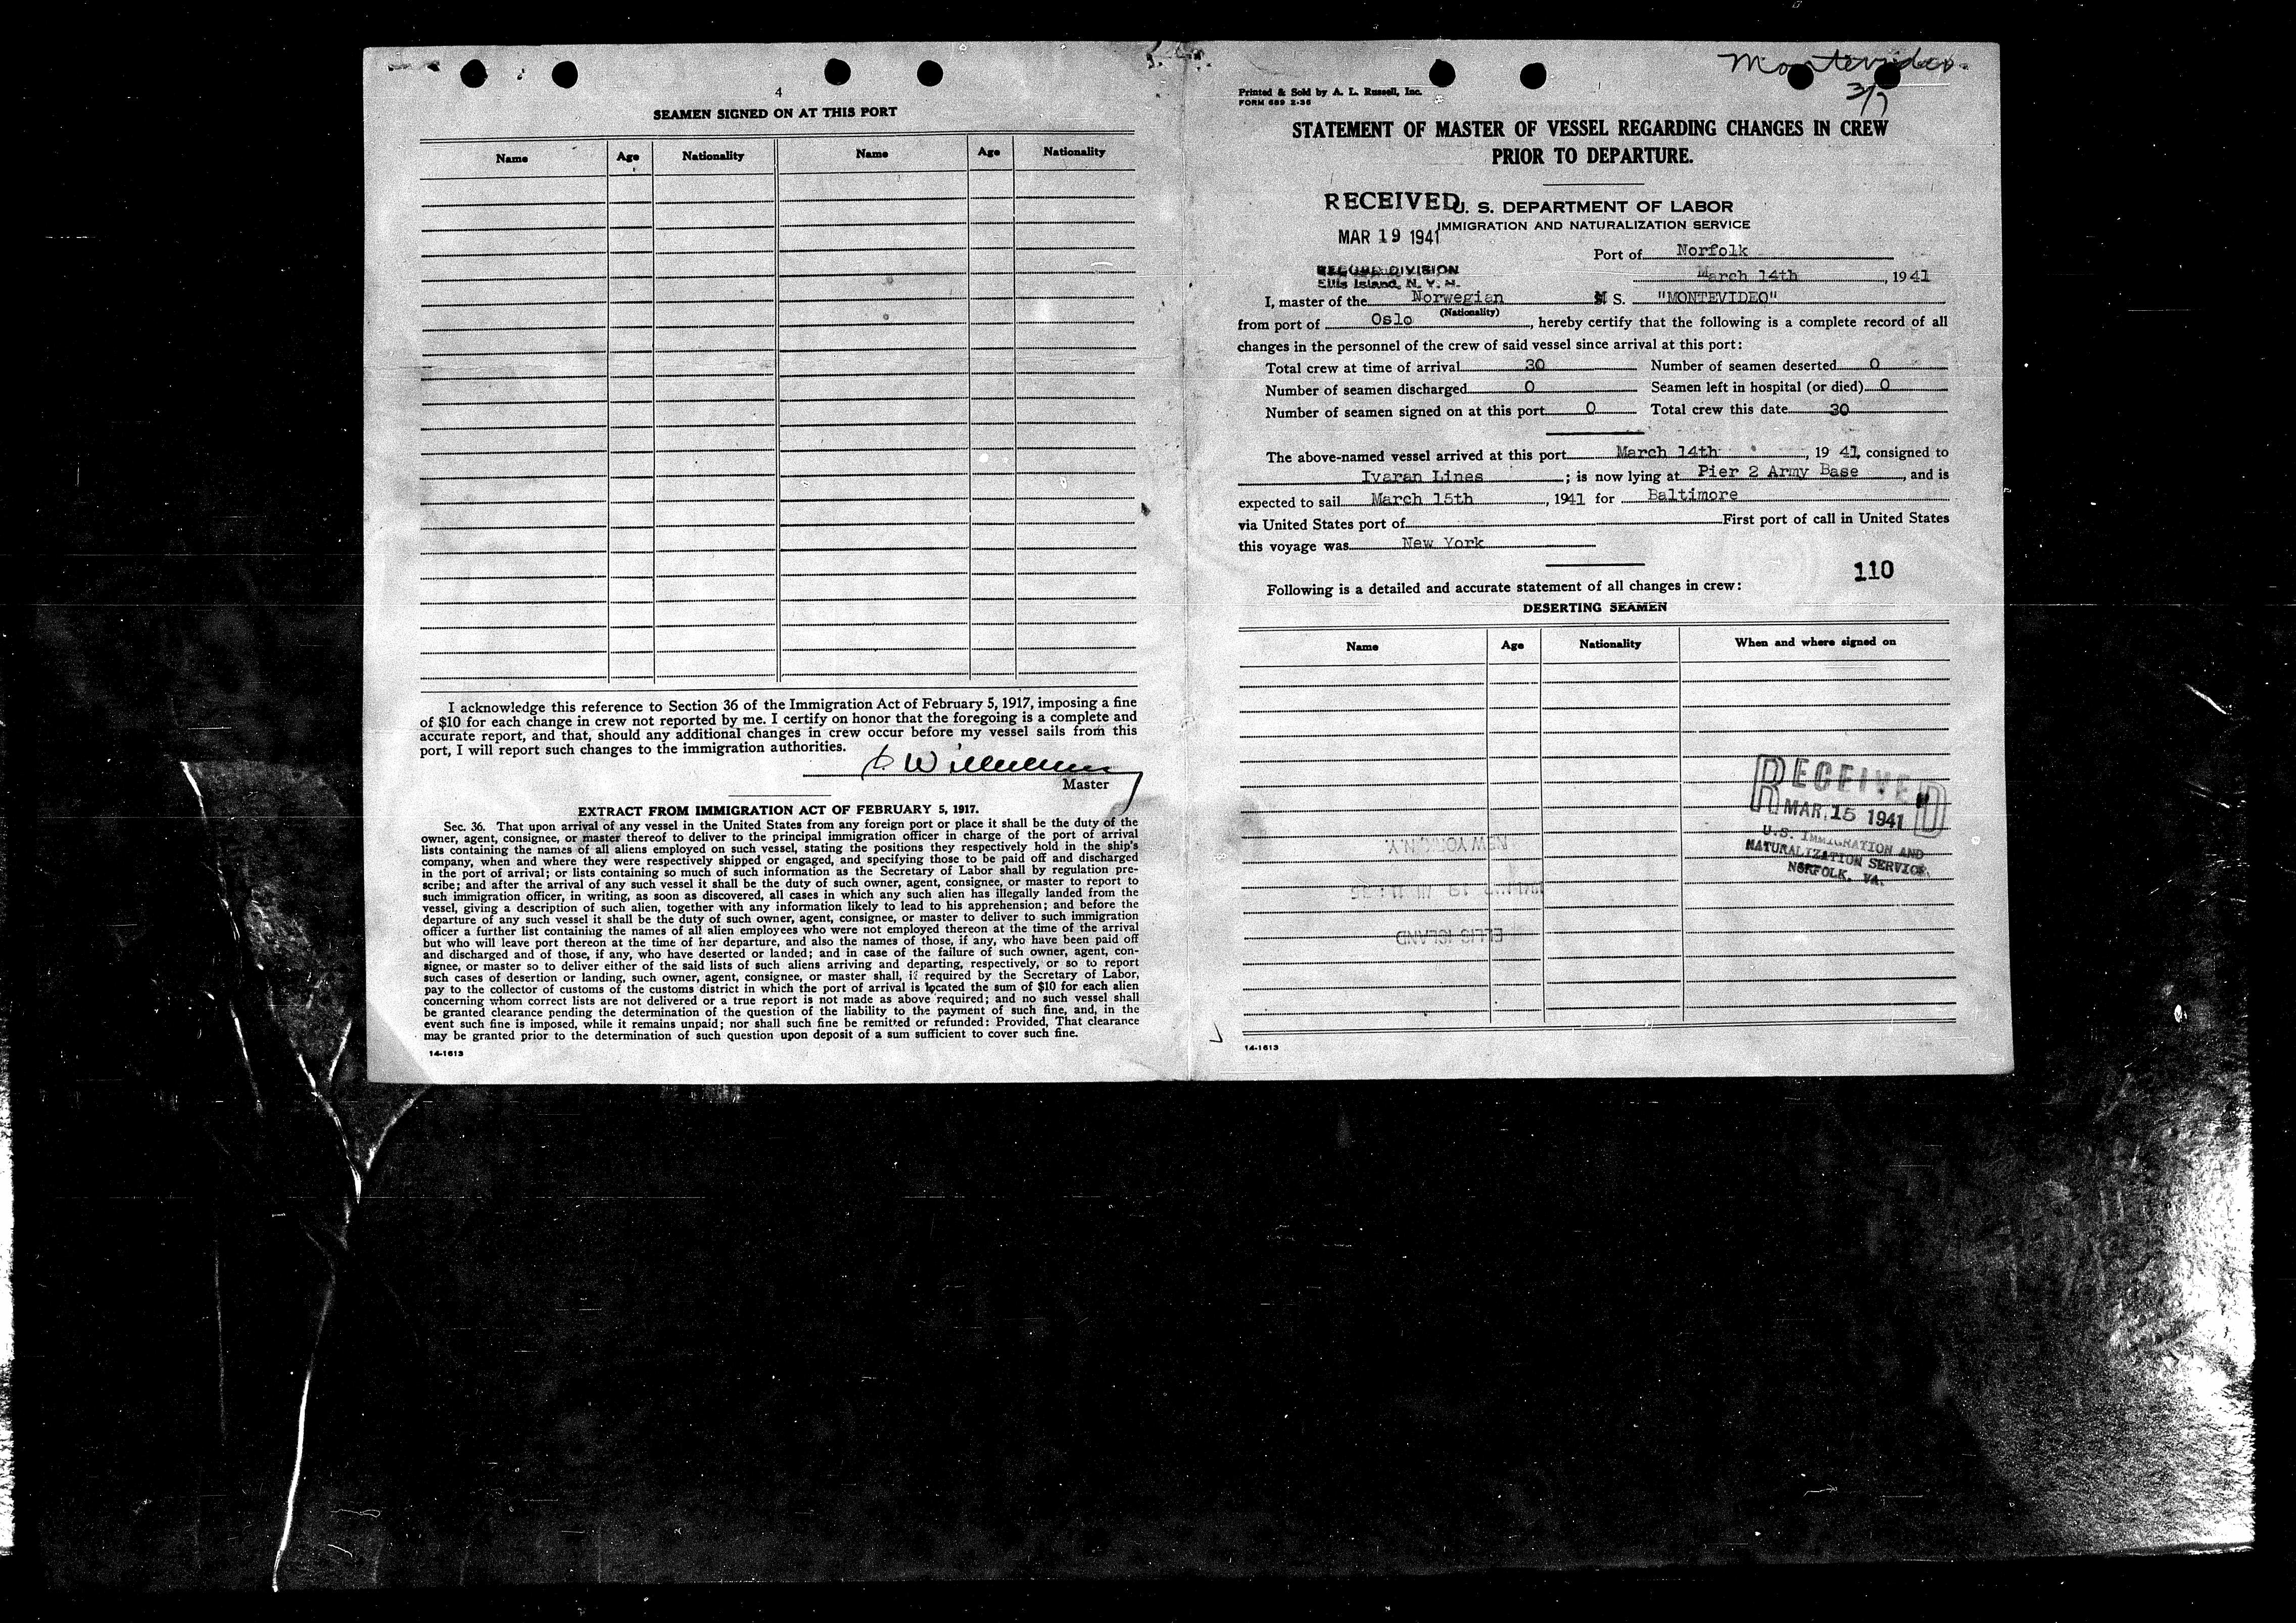 4
SEAMEN SIGNED ON AT THIS PORT
Name Age Nationality Name Age Nationality
I acknowledge this reference to Section 36 of the Immigration Act of February 5, 1917, imposing a fine
of $10 for each change in crew not reported by me. I certify on honor that the foregoing is a complete and
accurate report, and that, should any additional changes in crew occur before my vessel sails from this
port, I will report such changes to the immigration authorities.
Master
EXTRACT FROM IMMIGRATION ACT OF FEBRUARY 5, 1917.
Sec. 36. That upon arrival of any vessel in the United States from any foreign port or place it shall be the duty of the
owner, agent, consignee, or master thereof to deliver to the principal immigration officer in charge of the port of arrival
lists containing the names of all aliens employed on such vessel, stating the positions they respectively hold in the ship's
company, when and where they were respectively shipped or engaged, and specifying those to be paid off and discharged
in the port of arrival; or lists containing so much of such information as the Secretary of Labor shall by regulation pre-
scribe; and after the arrival of any such vessel it shall be the duty of such owner, agent, consignee, or master to report to
such immigration officer, in writing, as soon as discovered, all cases in which any such alien has illegally landed from the
vessel, giving a description of such alien, together with any information likely to lead to his apprehension; and before the
departure of any such vessel it shall be the duty of such owner, agent, consignee, or master to deliver to such immigration
officer a further list containing the names of all alien employees who were not employed thereon at the time of the arrival
but who will leave port thereon at the time of her departure, and also the names of those, if any, who have been paid off
and discharged and of those, if any, who have deserted or landed; and in case of the failure of such owner, agent, con-
signee, or master so to deliver either of the said lists of such aliens arriving and departing, respectively, or so to report
such cases of desertion or landing, such owner, agent, consignee, or master shall, if required by the Secretary of Labor,
pay to the collector of customs of the customs district in which the port of arrival is located the sum of $10 for each alien
concerning whom correct lists are not delivered or a true report is not made as above required; and no such vessel shall
be granted clearance pending the determination of the question of the liability to the payment of such fine, and, in the
event such fine is imposed, while it remains unpaid; nor shall such fine be remitted or refunded: Provided, That clearance
may be granted prior to the determination of such question upon deposit of a sum sufficient to cover such fine.
14-1613
Montevideo.
3/7
Printed & Sold by A. L. Russell, Inc.
FORM 689 2-36
STATEMENT OF MASTER OF VESSEL REGARDING CHANGES IN CREW
PRIOR TO DEPARTURE.
RECEIVED
MAR 19 1941
RECORD DIVISION
Ellis Island, N. Y. H.
U. S. DEPARTMENT OF LABOR
IMMIGRATION AND NATURALIZATION SERVICE
Port of Norfolk
March 14th, 1941
I, master of the Norwegian M S. "MONTEVIDEO"
(Nationality)
from port of Oslo, hereby certify that the following is a complete record of all
changes in the personnel of the crew of said vessel since arrival at this port:
Total crew at time of arrival 30 Number of seamen deserted 0
Number of seamen discharged 0 Seamen left in hospital (or died) 0
Number of seamen signed on at this port 0 Total crew this date 30
The above-named vessel arrived at this port March 14th, 19 41, consigned to
Ivaran Lines; is now lying at Pier 2 Army Base, and is
expected to sail March 15th, 1941 for Baltimore
via United States port of First port of call in United States
this voyage was New York
110
Following is a detailed and accurate statement of all changes in crew:
DESERTING SEAMEN
Name Age Nationality When and where signed on
RECEIVED
MAR 15 1941
U.S. IMMIGRATION AND
NATURALIZATION SERVICE
NORFOLK, VA.
NEW YORK, N.Y.
ELLIS ISLAND
14-1613